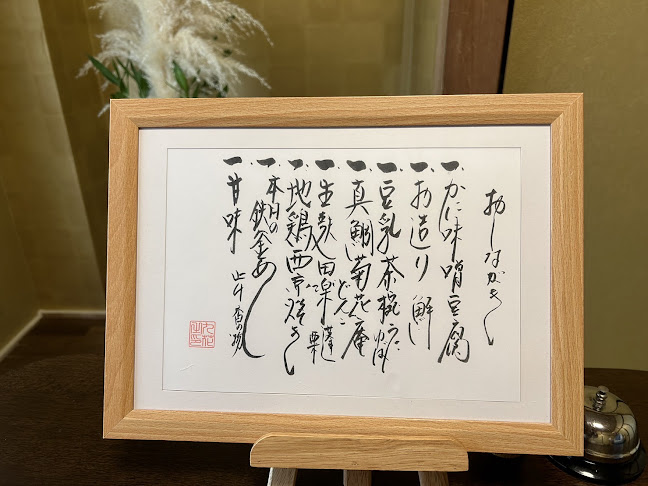 おしながき
一、かに味噌豆腐
一、お造り 鮮
一、豆乳茶碗
一、真鯛菊花庵
どんこ
一、生麩田楽 蓬 粟
一、地鶏西京焼き
一、本日の鉄釜めし
一、甘味